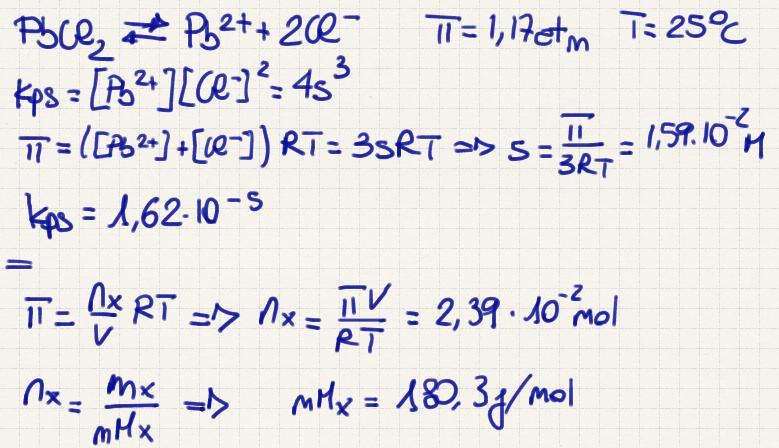 PbCl₂ ⇌ Pb²⁺ + 2Cl⁻ π = 1,17 atm T = 25°C
Kps = [Pb²⁺][Cl⁻]² = 4s³
π = ([Pb²⁺] + [Cl⁻]) RT = 3sRT => s = π/3RT = 1,59·10⁻² M
Kps = 1,62·10⁻⁵
=
π = nx/V RT => nx = πV/RT = 2,39·10⁻² mol
nx = mx/mMx => mMx = 180,3 g/mol